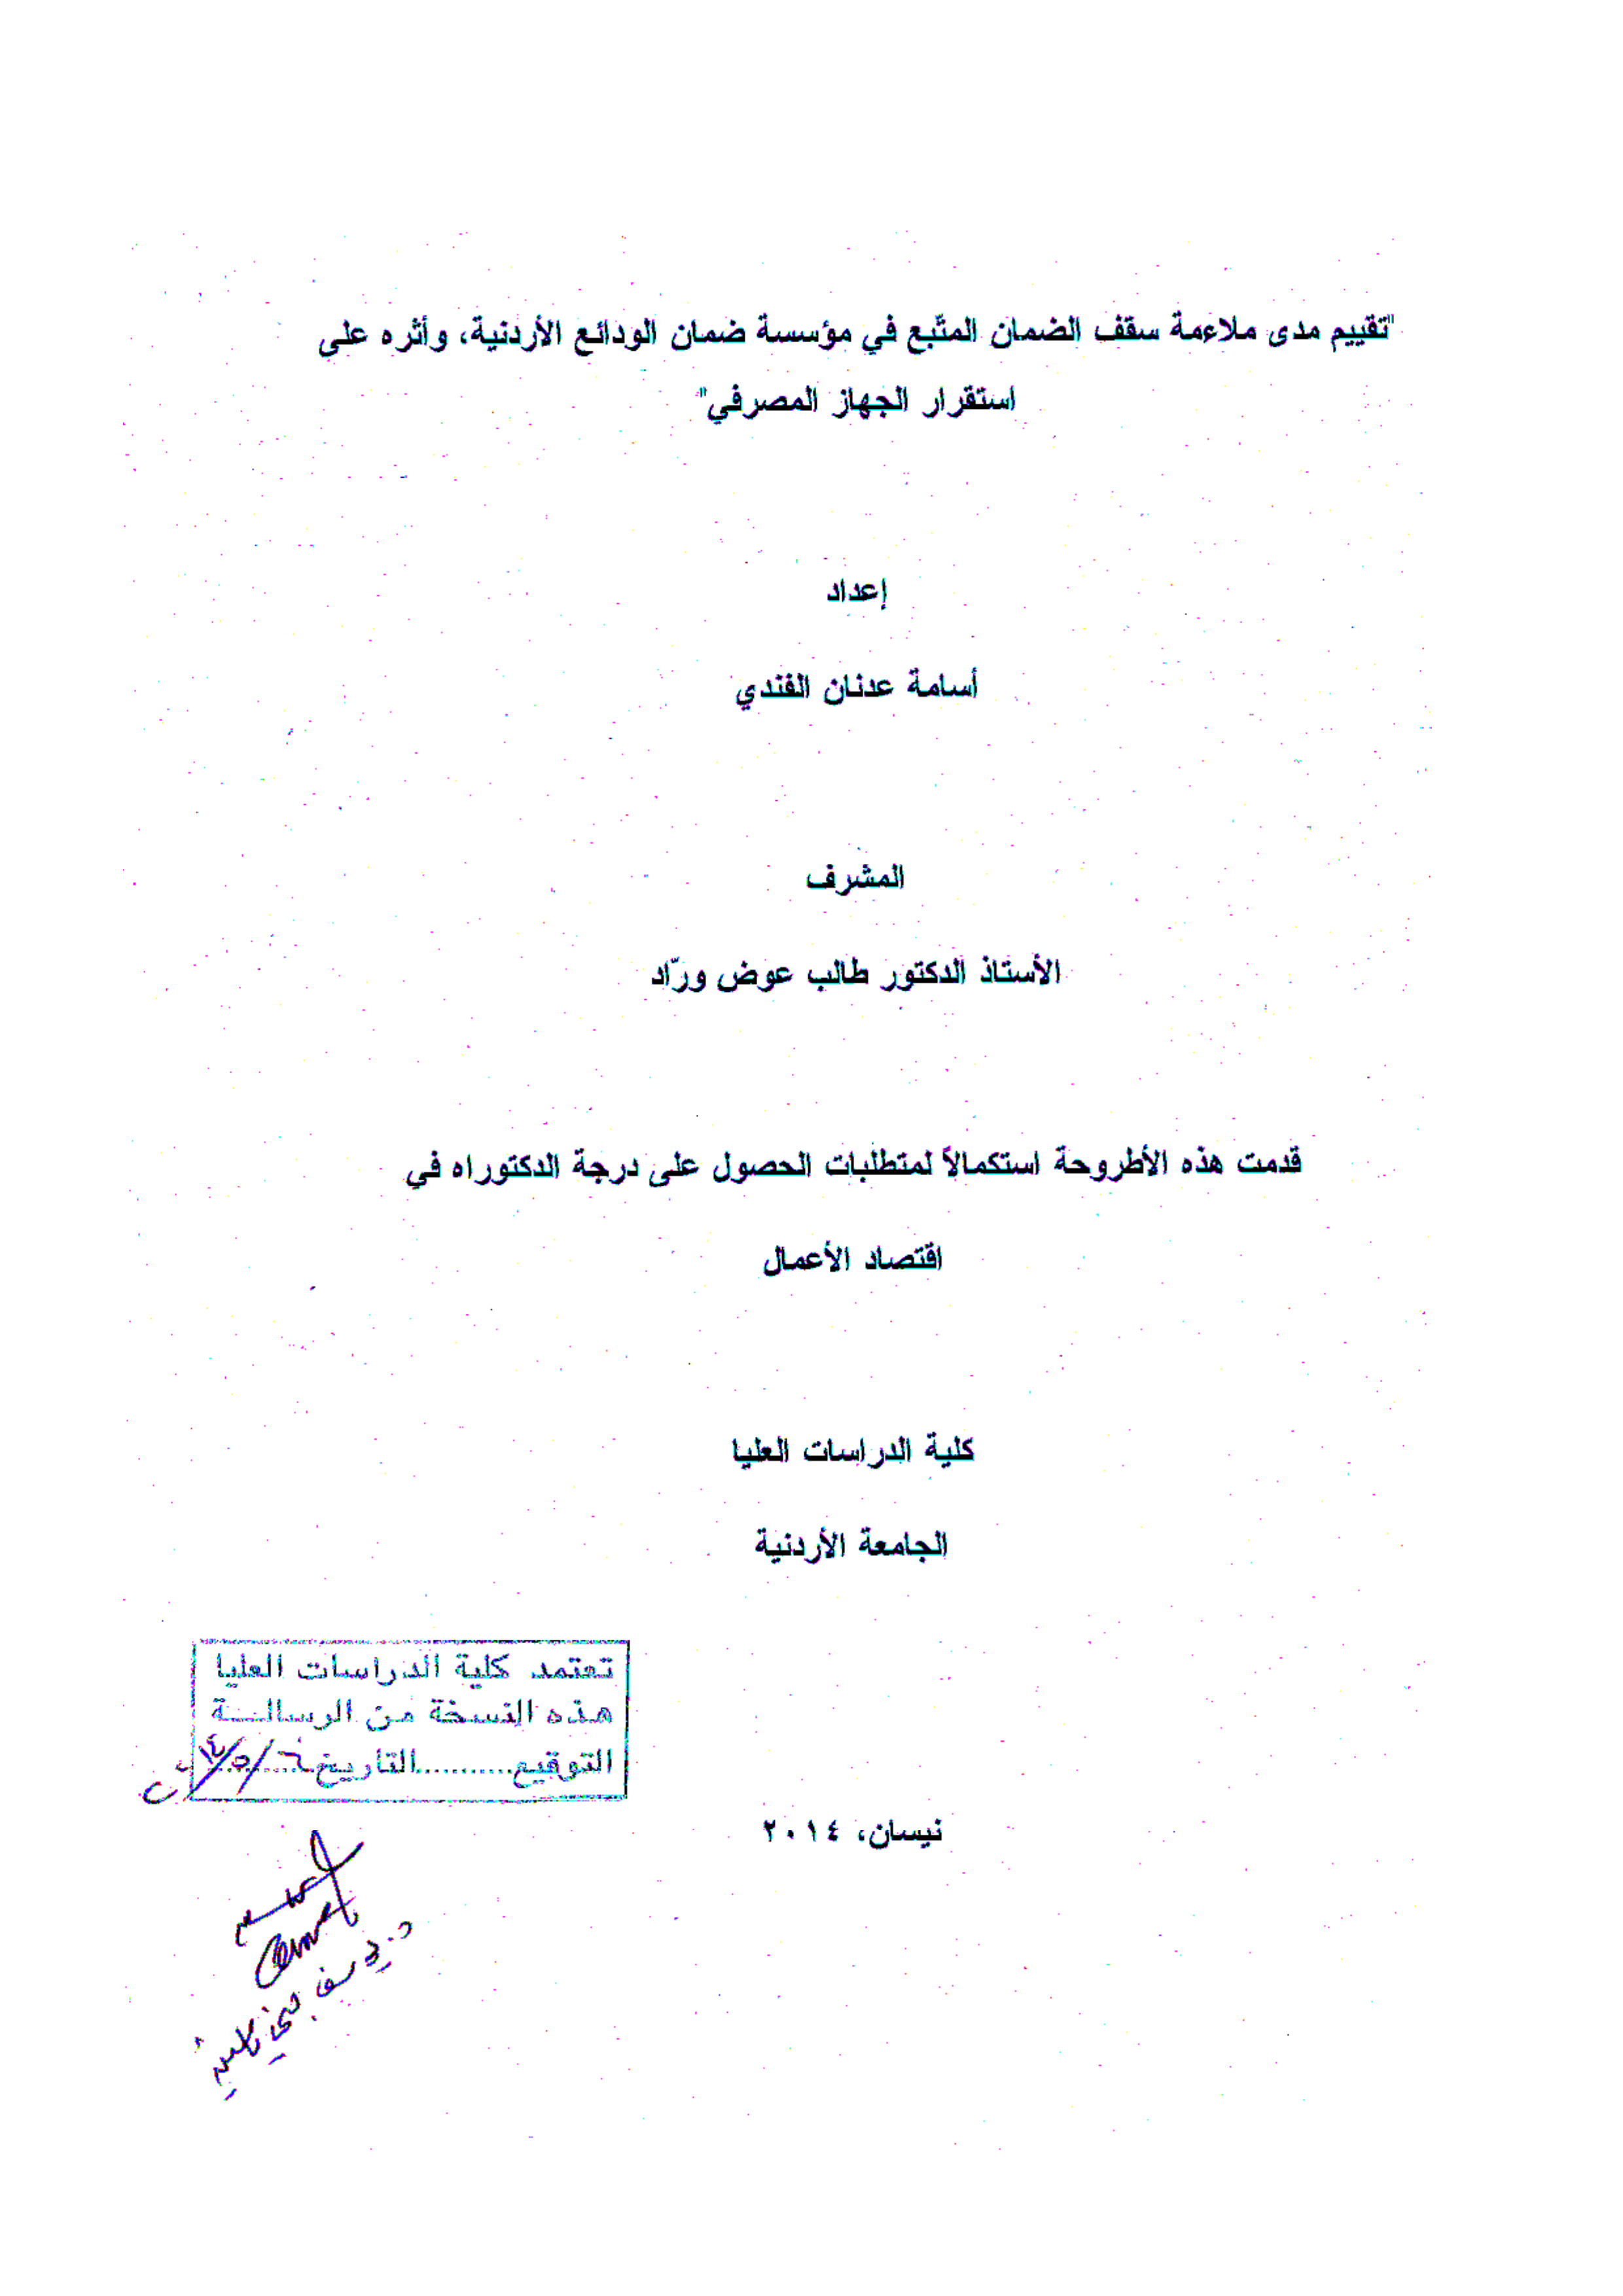 "تقييم مدى ملاءمة سقف الضمان المتّبع في مؤسسة ضمان الودائع الأردنية، وأثره على
استقرار الجهاز المصرفي"
إعداد
أسامة عدنان الفندي
المشرف
الأستاذ الدكتور طالب عوض ورّاد
قدمت هذه الأطروحة استكمالاً لمتطلبات الحصول على درجة الدكتوراه في
اقتصاد الأعمال
كلية الدراسات العليا
الجامعة الأردنية
تعتمد كلية الدراسات العليا
هذه النسخة من الرسالــة
التوقيع...........التاريخ
نيسان، ٢٠١٤